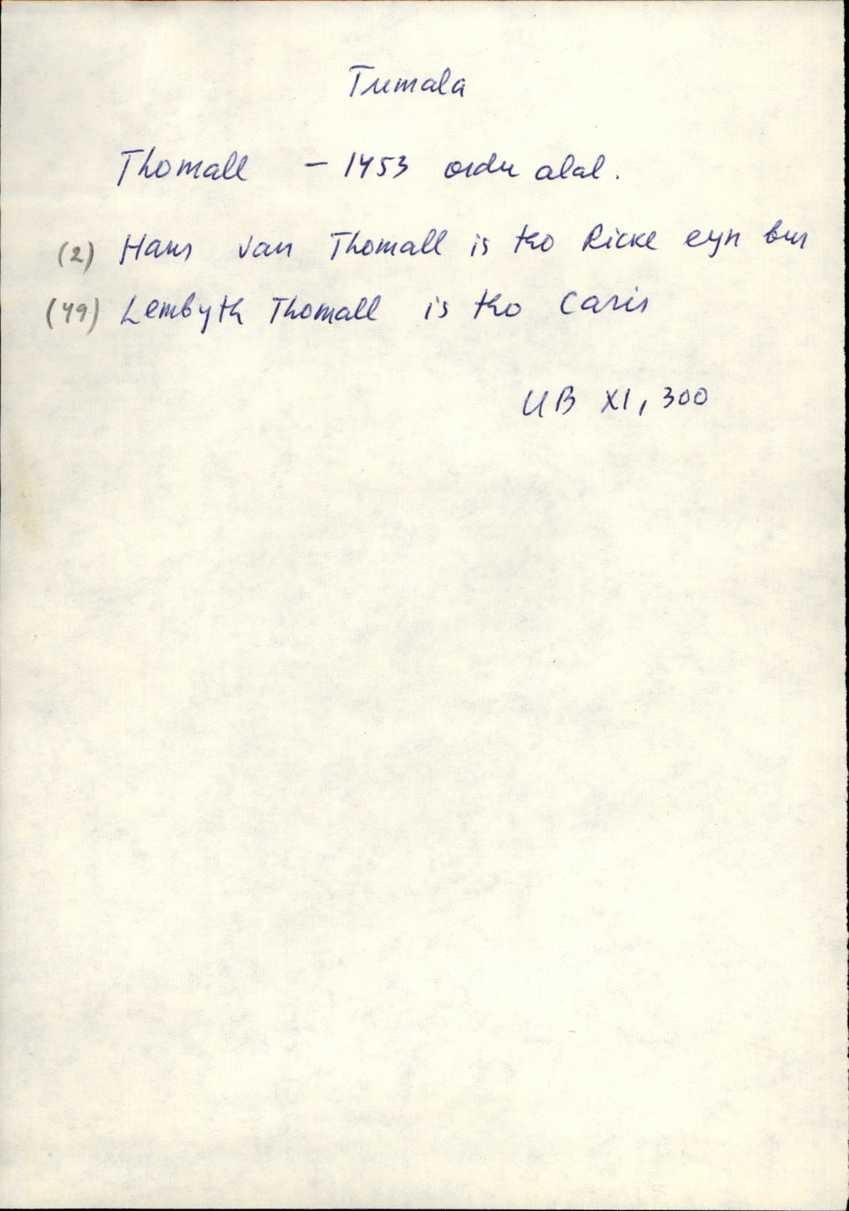 Tumala
Thomall – 1453 ordu alal.
(2) Hans van Thomall is tho Ricke eyn bur
(49) Lembyth Thomall is tho Caris
UB XI, 300